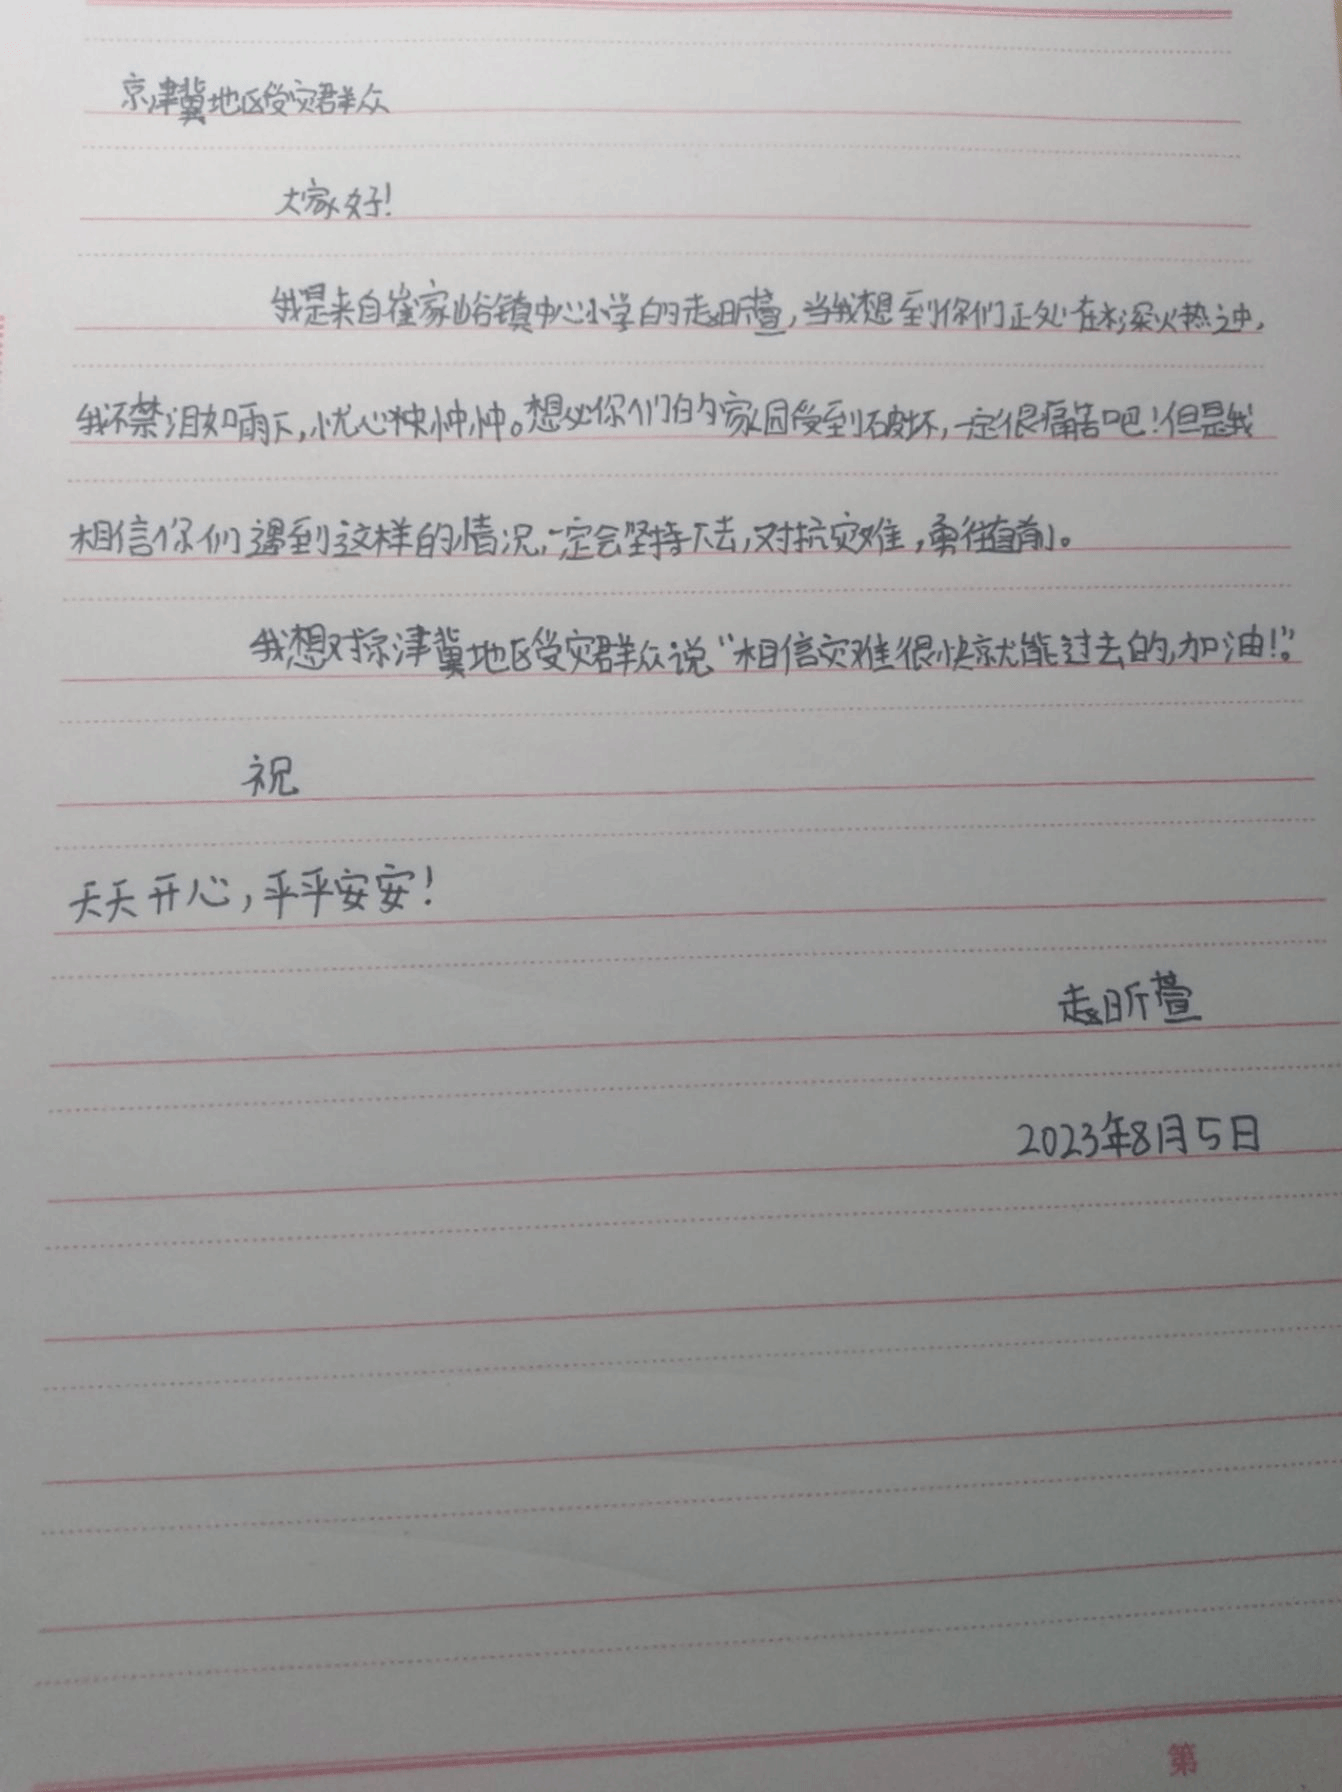 京津冀地区受灾群众
大家好!
我是来自崔家峪镇中心小学的赵昕萱,当我想到你们正处在水深火热之中,
我不禁泪如雨下,忧心忡忡。想必你们的家园受到破坏,一定很痛苦吧!但是我
相信你们遇到这样的情况,一定会坚持下去,对抗灾难,勇往直前。
我想对京津冀地区受灾群众说“相信灾难很快就能过去的,加油!”。
祝
天天开心,平平安安!
赵昕萱
2023年8月5日
第